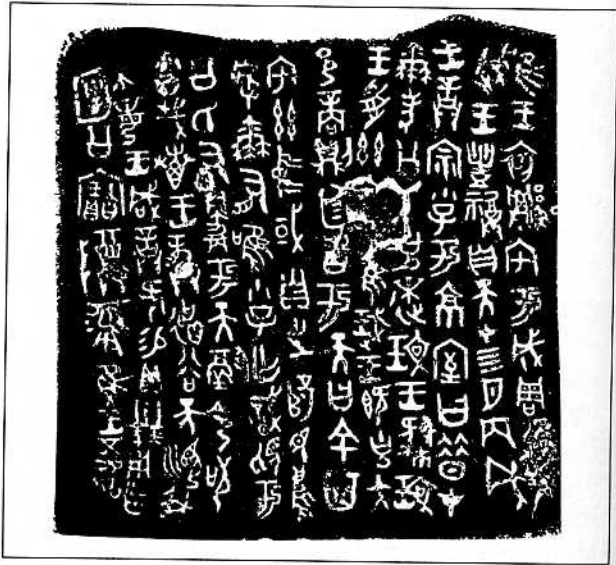 隹王初遷宅于成周復爯
珷王豊祼自天才四月丙戌
王誥宗小子于京室曰昔才
爾考公氏克逨玟王肆玟
王受茲隹珷王既克大
邑商則廷告于天曰余其
宅茲中或自之乂民烏
虖爾有唯小子亡識視于
公氏有爵于天徹令敬
享哉叀王恭德谷天訓我
不敏王咸誥何易貝卅朋用乍
公寶尊彝隹王五祀